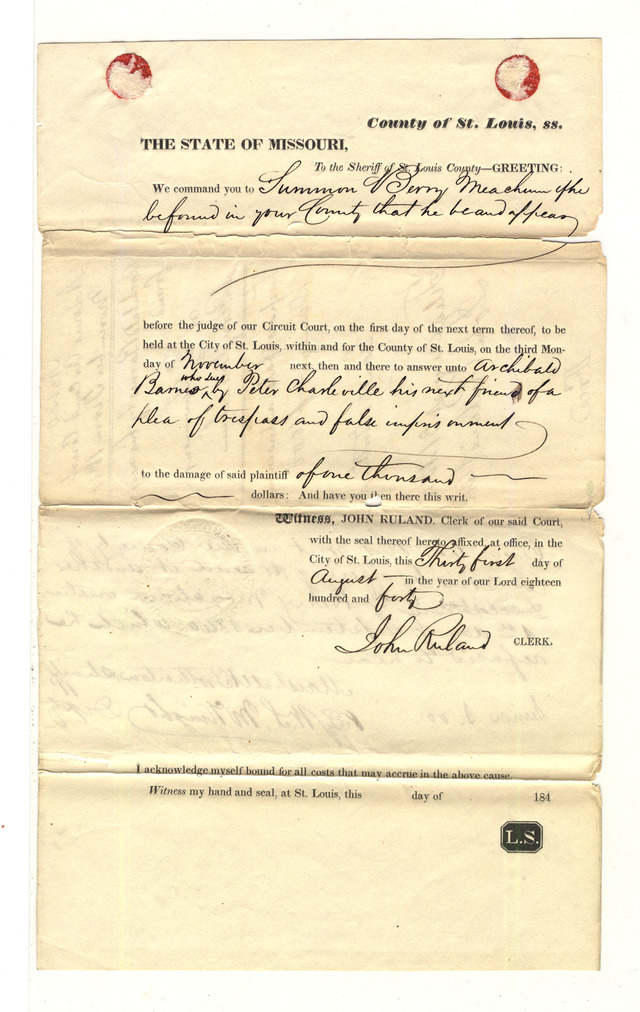 County of St. Louis, ss.
THE STATE OF MISSOURI,
To the Sheriff of St. Louis County—GREETING:
We command you to Summon Berry Meachum if he
be found in your County that he be and appear
before the judge of our Circuit Court, on the first day of the next term thereof, to be
held at the City of St. Louis, within and for the County of St. Louis, on the third Mon-
day of November next, then and there to answer unto Archibald
who sues
Barnes by Peter Charleville his next friend of a
plea of trespass and false imprisonment
to the damage of said plaintiff of one thousand
dollars: And have you then there this writ.
Witness, JOHN RULAND. Clerk of our said Court,
with the seal thereof hereto affixed, at office, in the
City of St. Louis, this Thirty first day of
August in the year of our Lord eighteen
hundred and forty
John Ruland CLERK.
I acknowledge myself bound for all costs that may accrue in the above cause.
Witness my hand and seal, at St. Louis, this day of 184
L.S.